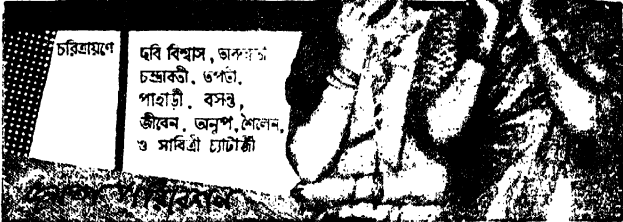 চরিত্রায়ণে
ছবি বিশ্বাস,
চন্দ্রাবতী, তপতী,
পাহাড়ী, বসন্ত,
জীবেন, অনুপ, শৈলেন,
ও সাবিত্রী চ্যাটার্জ্জী